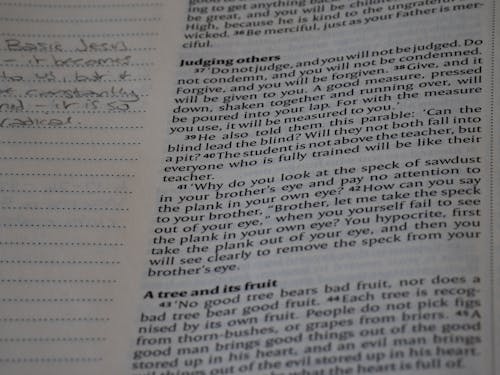 Basic Jesus
- it becomes
to us, but &
be constantly
- it is so
radical.
ing to get anything back
be great, and you will be children
High, because he is kind to the ungrateful
wicked. 36 Be merciful, just as your Father is mer-
ciful.
Judging others
37 'Do not judge, and you will not be judged. Do
not condemn, and you will not be condemned.
Forgive, and you will be forgiven. 38 Give, and it
will be given to you. A good measure, pressed
down, shaken together and running over, will
be poured into your lap. For with the measure
you use, it will be measured to you.'
39 He also told them this parable: 'Can the
blind lead the blind? Will they not both fall into
a pit? 40 The student is not above the teacher, but
everyone who is fully trained will be like their
teacher.
41 'Why do you look at the speck of sawdust
in your brother's eye and pay no attention to
the plank in your own eye? 42 How can you say
to your brother, "Brother, let me take the speck
out of your eye," when you yourself fail to see
the plank in your own eye? You hypocrite, first
take the plank out of your eye, and then you
will see clearly to remove the speck from your
brother's eye.
A tree and its fruit
43 'No good tree bears bad fruit, nor does a
bad tree bear good fruit. 44 Each tree is recog-
nised by its own fruit. People do not pick figs
from thorn-bushes, or grapes from briers. 45 A
good man brings good things out of the good
stored up in his heart, and an evil man brings
evil things out of the evil stored up in his heart.
what the heart is full of.